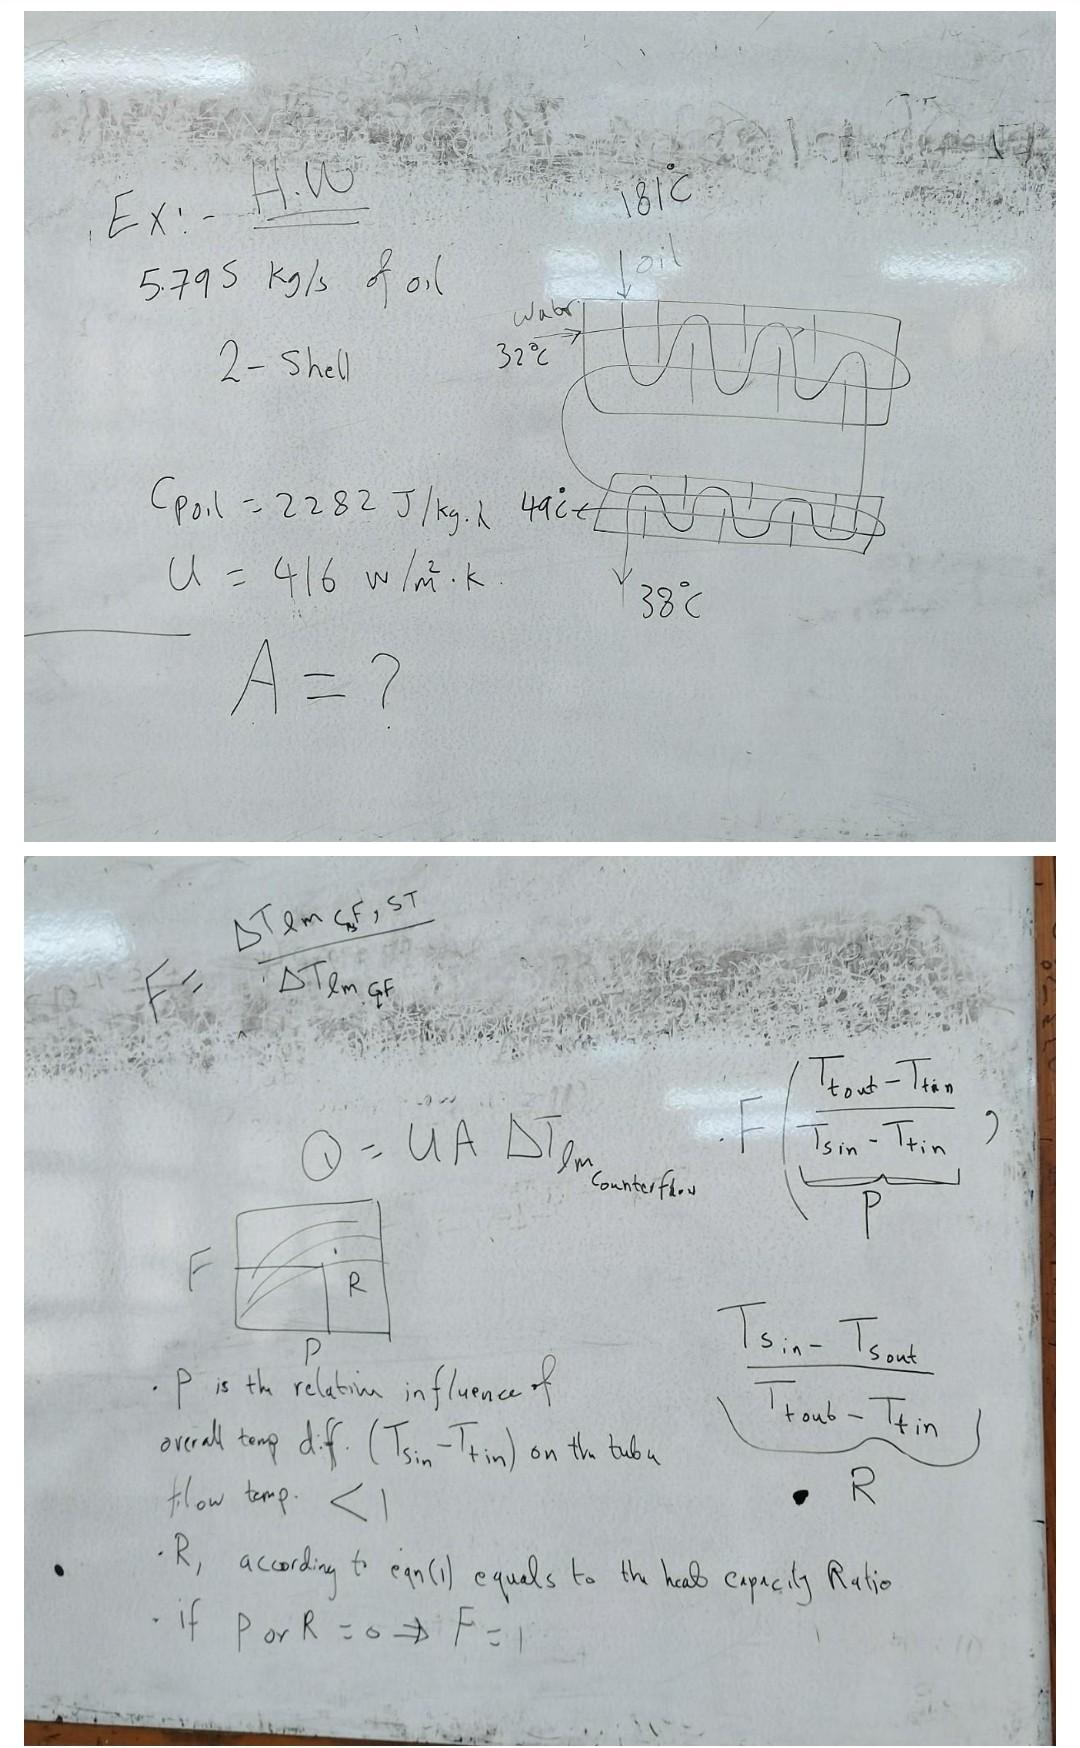 Ex:- H.W
5.795 kg/s of oil
2- Shell
181°C
oil
water
32°C
Cpoil = 2282 J/kg.k
49°C
U = 416 w/m².k.
38°C
A = ?
F = ΔTlm CF, ST / ΔTlm CF
Q = UA ΔTlm counterflow
F ( Ttout - Ttin / Tsin - Ttin ,
P
F
R
P
Tsin - Tsout / Ttout - Ttin
R
. P is the relative influence of
overall temp dif. (Tsin - Ttin) on the tube
flow temp. < 1
. R, according to eqn(1) equals to the heat capacity Ratio
. if P or R = 0 ⇒ F = 1